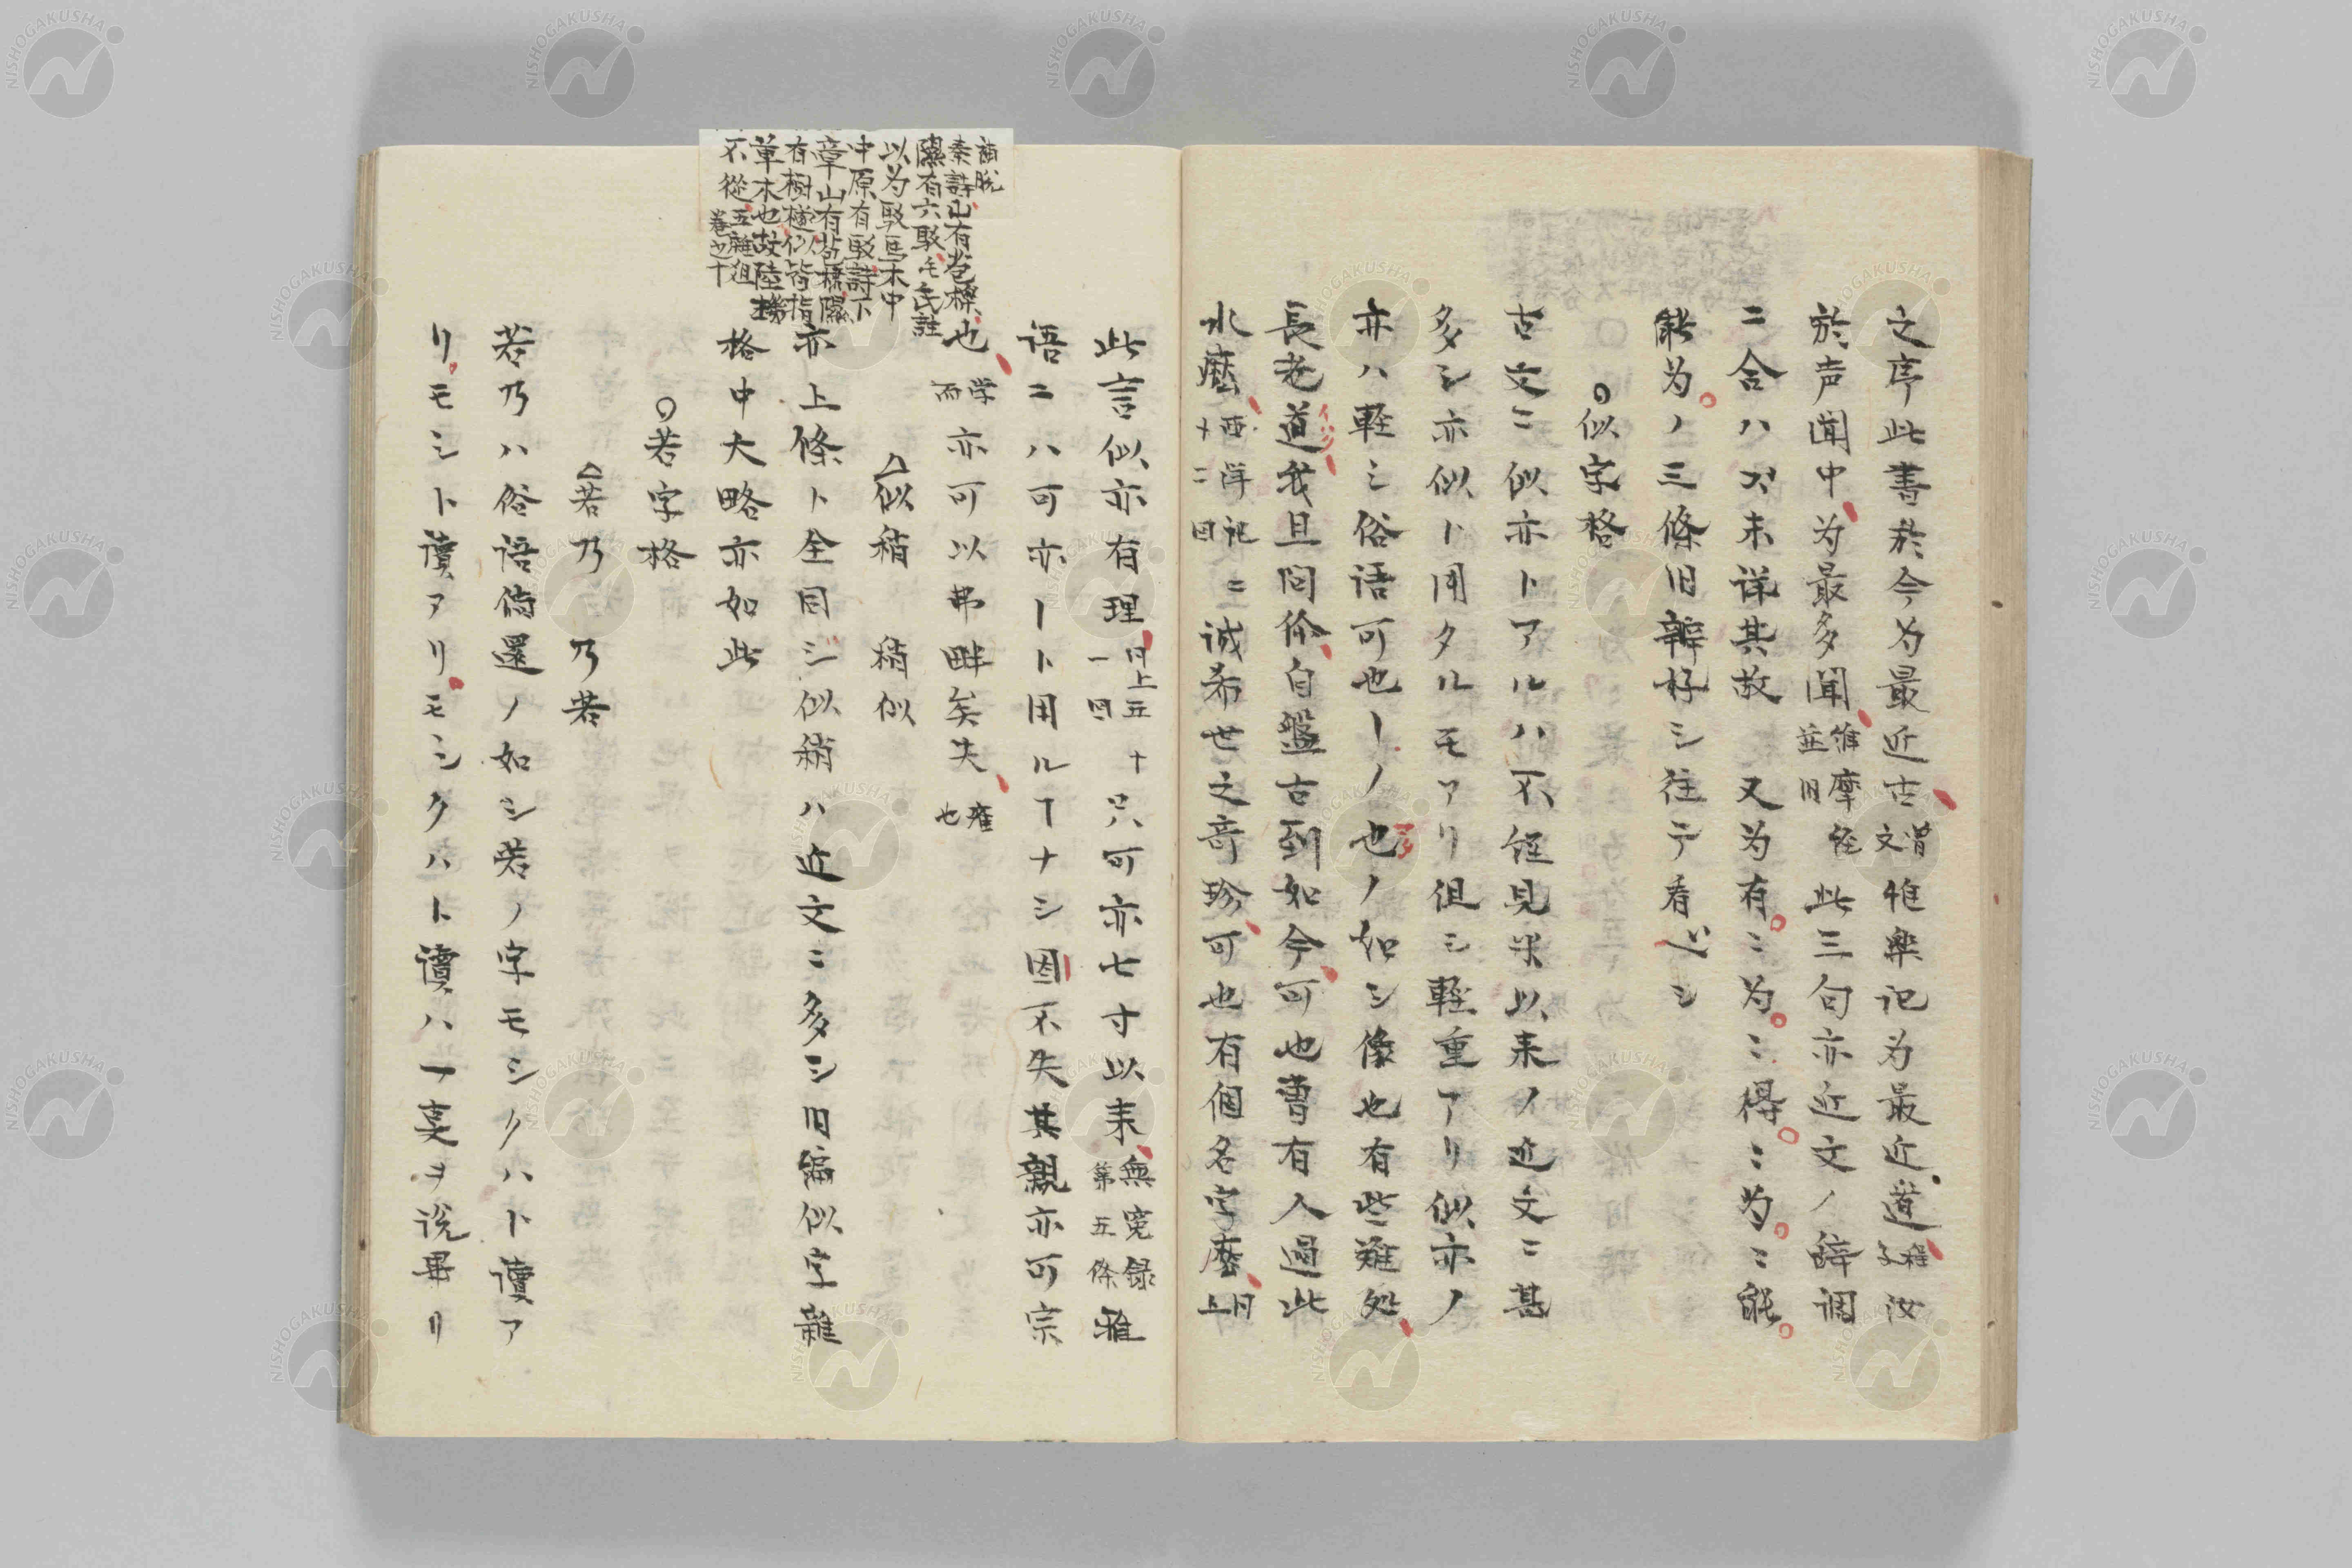 之序此書於今为最近古曽文惟樂記为最近道程子汝
於声闻中为最多闻維摩経並旧此三句亦近文ノ辞调
ニ合ハズ未详其故　又为有ニ为ニ得ニ为ニ能
能为ノ三條旧辨好シ往テ看ベシ
似字格
古文ニ似亦トアルハ不経見宋以来ノ近文ニ甚
多シ亦似ト用タルモアリ但シ軽重アリ似亦ノ
亦ハ軽シ俗语可也ーノ也ノ如シ像也有些难处
長老道我且问伱自盤古到如今可也曹有人過此
水麽西洋記十二回ニ诚希世之奇珍可也有個名字麽同上
此言似亦有理同上五十一回只可亦七寸以来無冤録第五條雅
语ニハ可亦ートト用ルヿナシ因不失其親亦可宗
也学而亦可以弗畔矣夫雍也
似稍　稍似
亦上條ト全同ジ似稍ハ近文ニ多シ旧編似字雜
格中大略亦如此
若字格
若乃　乃若
若乃ハ俗语倘還ノ如シ若ノ字モシクハト讀ア
リモシト讀アリモシクハト讀ハ一叓ヲ说畢リ
補脱
秦詩山有苞櫟
隰有六駁毛氏註
以为駁馬木中
中原有駁詩下
章山有苞棣隰
有樹檖似皆指
草木也故陸機
不從五雜俎卷之十
NISHOGAKUSHA